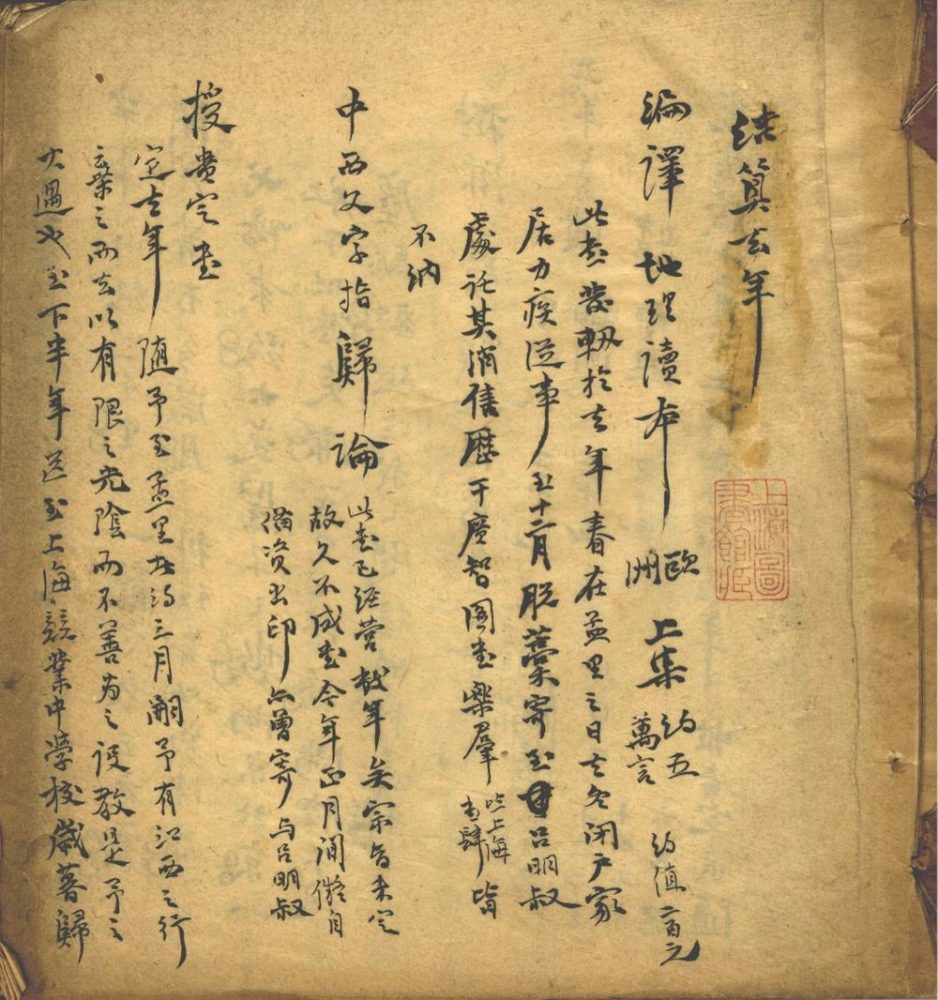 結算去年
編譯地理讀本 歐洲 上集 約五萬言 約值二百元
此書發軔於去年春在孟里之日去冬閉户家
居力疾從事至十二月脱藁寄至呂明叔
處託其消售歷干廣智圖書樂羣 皆上海書肆 皆
不納
中西文字指歸論 此書已經營数年矣宗旨未定
故久不成書今年正月間儗自
備資出印亦曾寄与呂明叔
授贵定書
定去年随予至孟里者約三月嗣予有江西之行
棄之而去以有限之光陰而不善为之設教是予之
大過也至下半年送至上海競業中学校歳暮歸
上海圖書館藏